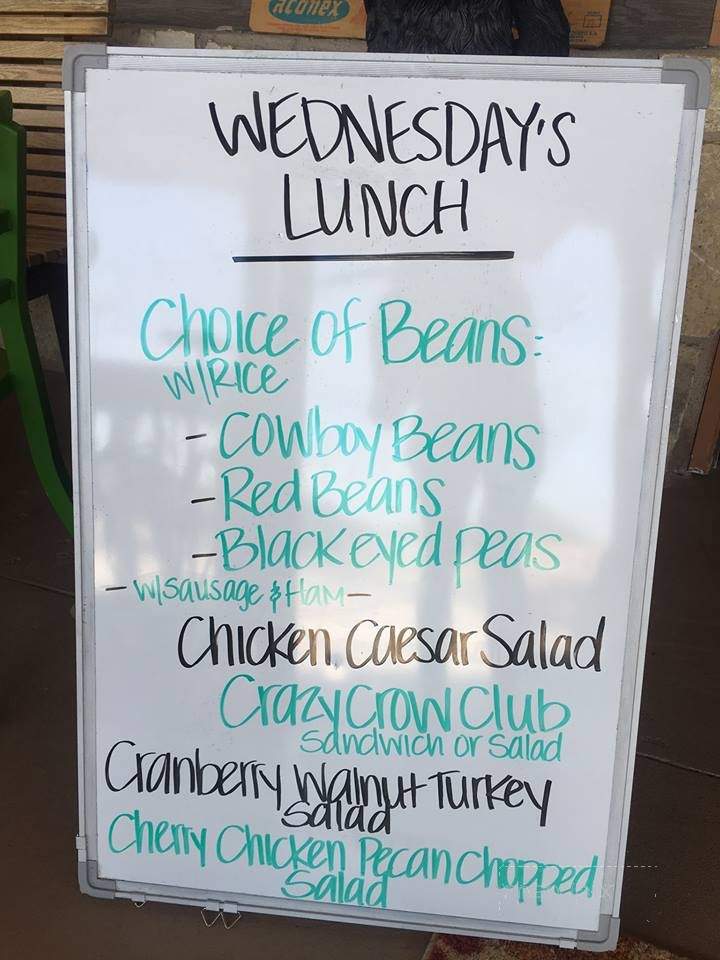 aconex
WEDNESDAY'S
LUNCH
Choice of Beans:
W/RICE
- Cowboy Beans
- Red Beans
- Black eyed peas
- w/sausage & Ham -
Chicken Caesar Salad
Crazy Crow Club
Sandwich or Salad
Cranberry Walnut Turkey
Salad
Cherry Chicken Pecan Chopped
Salad